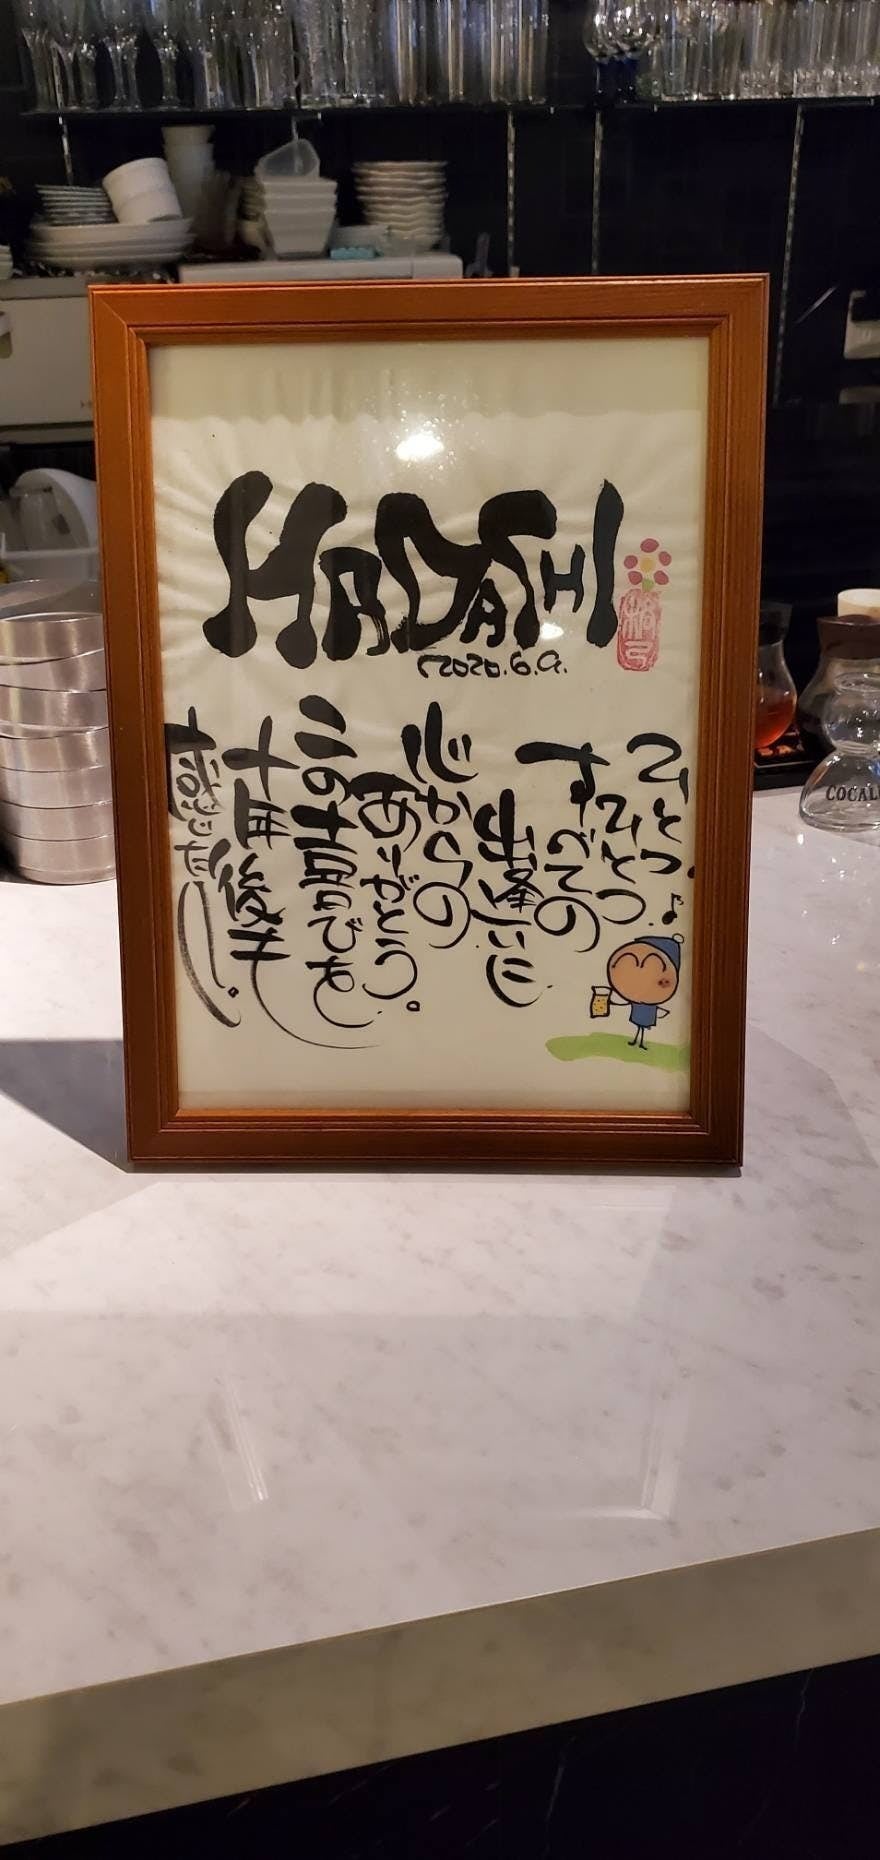 HADASHI
2020.6.9.
ひとつ
ひとつ♪
すべての
出逢いに
心からの
ありがとう。
この場所で
十年後も
COCAL